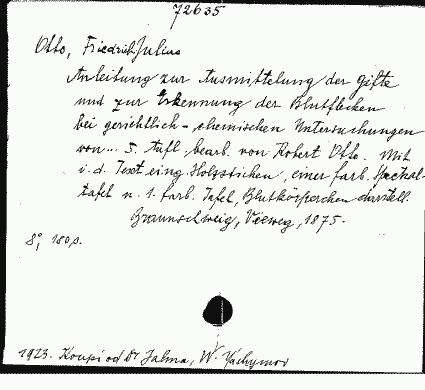 72635
Otto, Friedrich Julius
Anleitung zur Ausmittelung der Gifte
und zur Erkennung der Blutflecken
bei gerichtlich-chemischen Untersuchungen
von... 5. Aufl. bearb. von Robert Otto. Mit
i. d. Text eing. Holzstichen, einer farb. Spektal-
tafel u. 1. farb. Tafel, Blutkörperchen darstell.
Braunschweig, Vieweg, 1875.
8°, 180 p.
1923. Koupí od Dr Jalma, W.